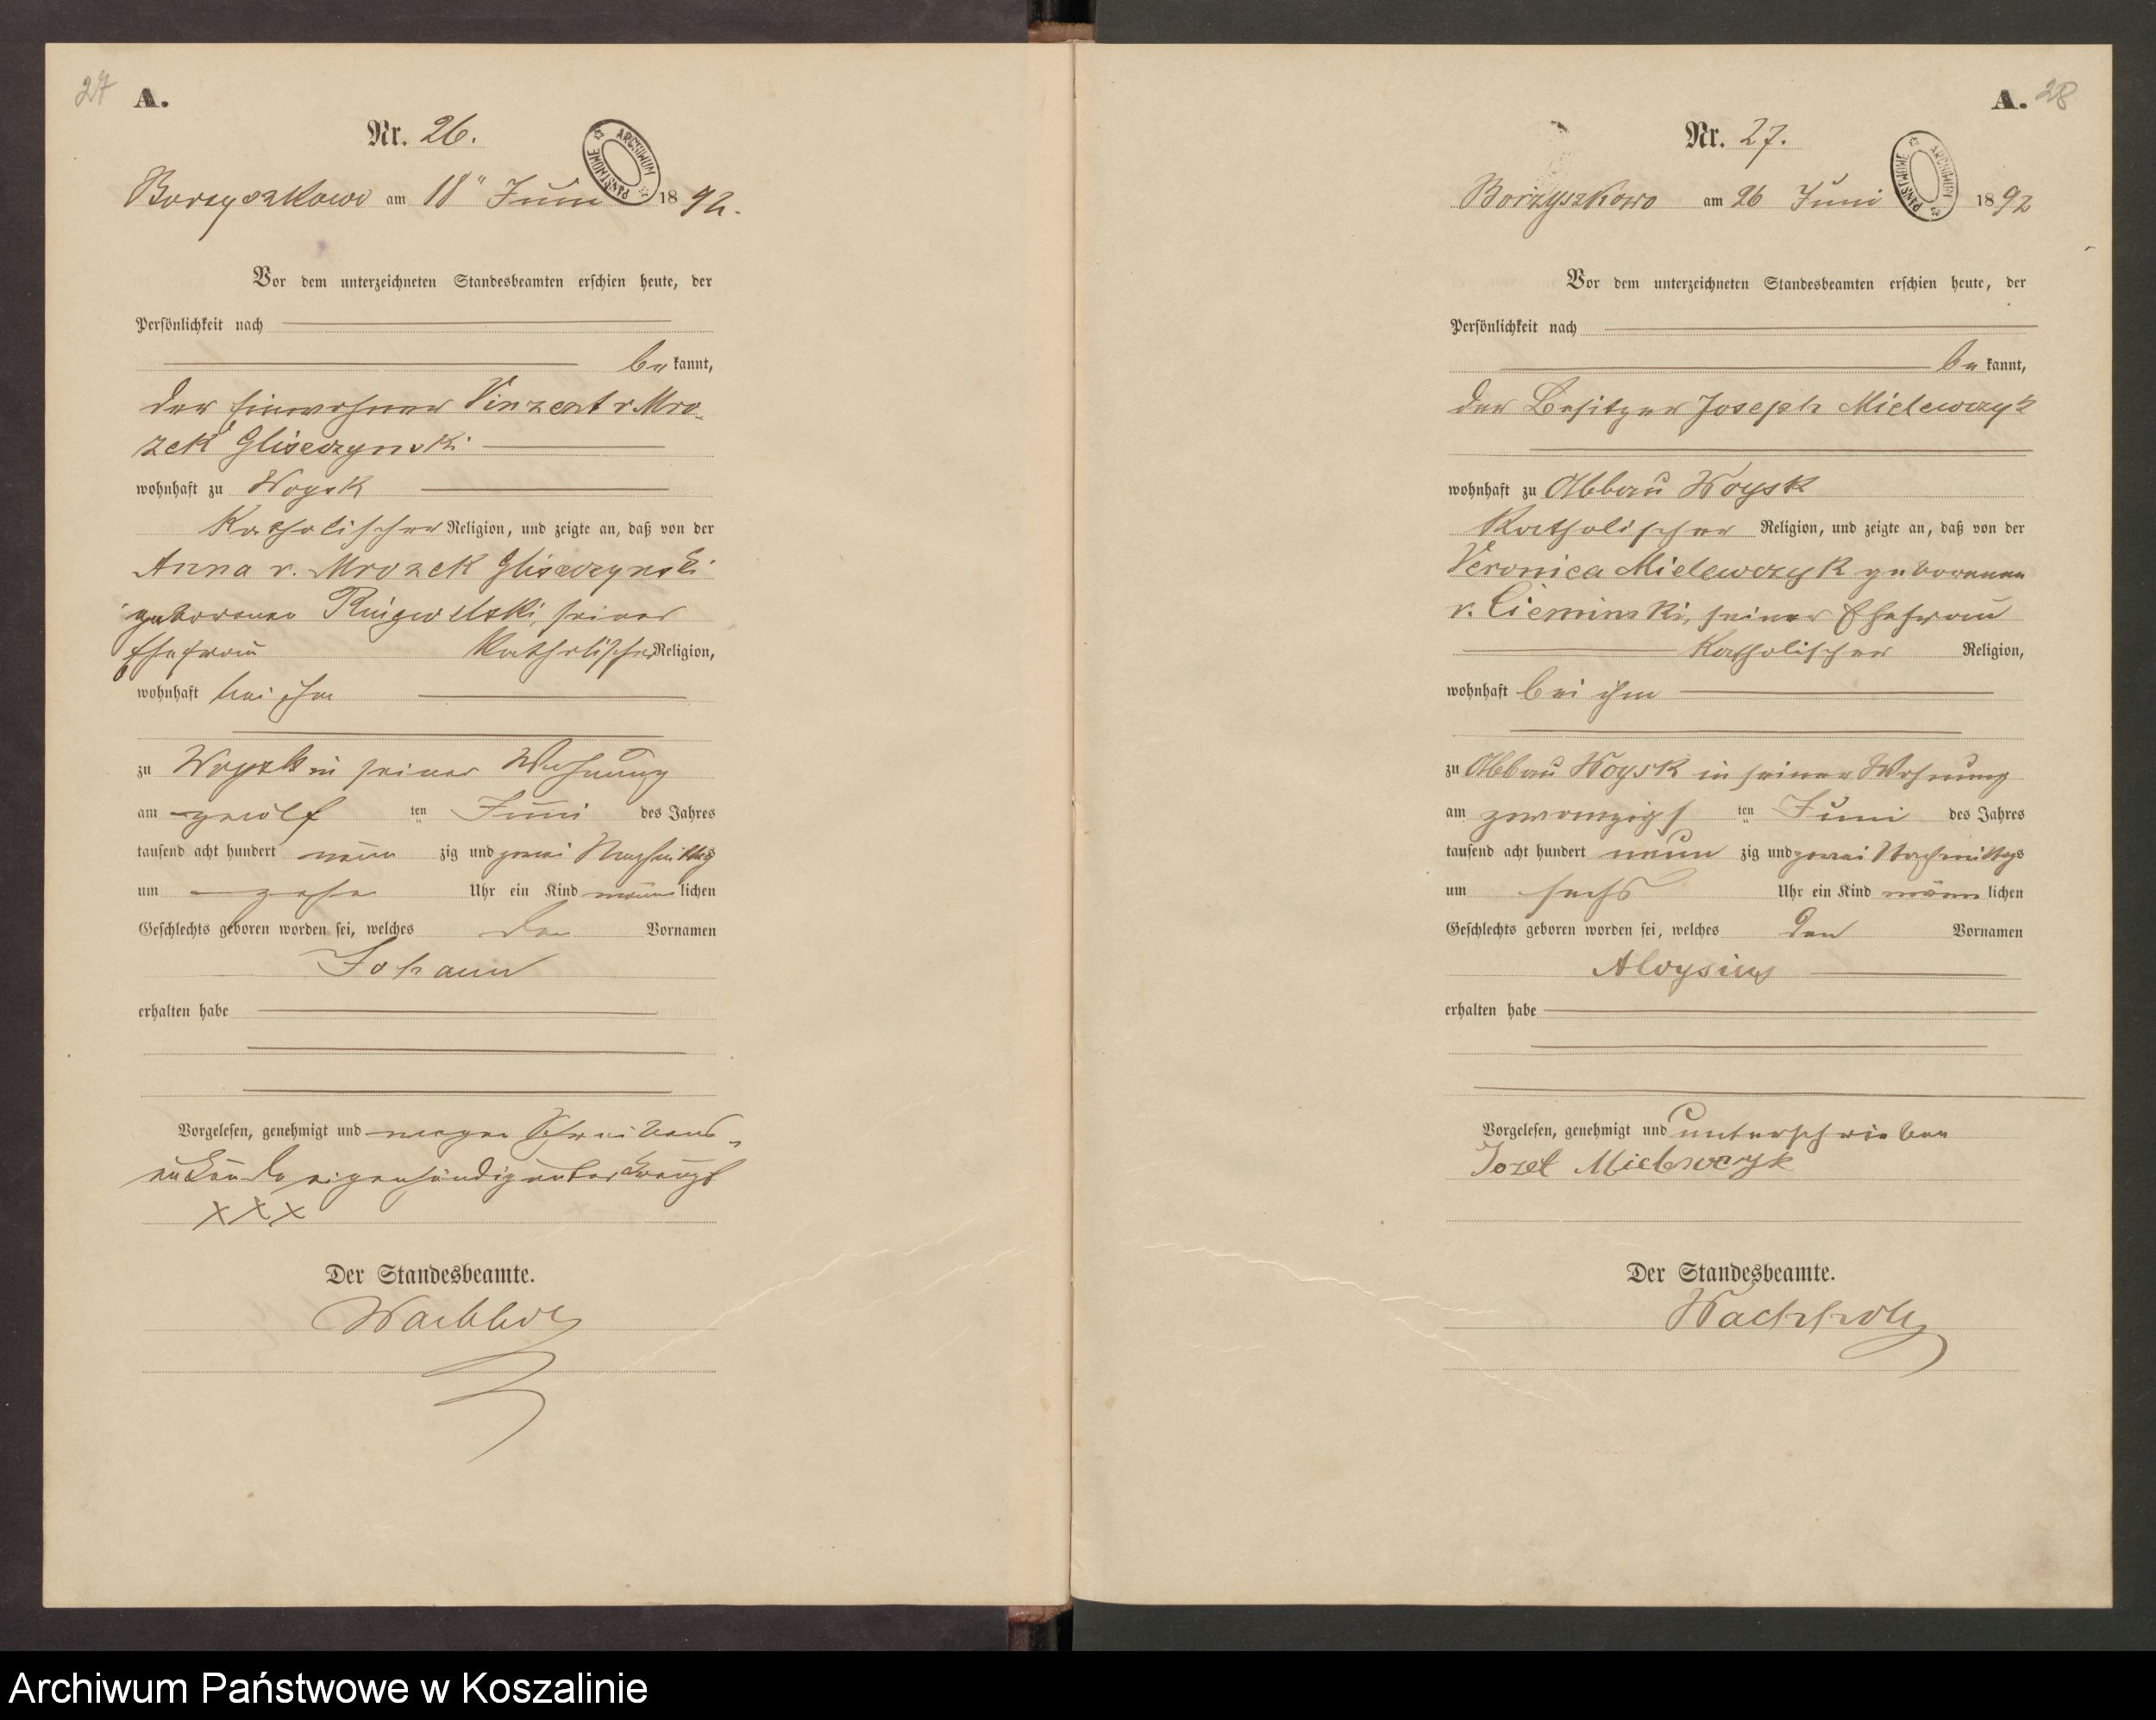 27
A.
Nr. 26.
ARCHIWUM PAŃSTWOWE
Borzyszkowo am 18" Juni 1892.
Vor dem unterzeichneten Standesbeamten erschien heute, der
Persönlichkeit nach
bekannt,
der Einwohner Vinzent v. Mro-
zek Glisczynski
wohnhaft zu Woysk
Katholischer Religion, und zeigte an, daß von der
Anna v. Mrozek Glisczynski
geborenen seiner
Ehefrau Katholischer Religion,
wohnhaft bei ihm
zu Woysk in seiner Wohnung
am zwölf ten Juni des Jahres
tausend acht hundert neun zig und zwei Nachmittags
um zehn Uhr ein Kind männlichen
Geschlechts geboren worden sei, welches den Vornamen
Johann
erhalten habe
Vorgelesen, genehmigt und wegen Schreibens-
unkunde eigenhändig unterkreuzt
XXX
Der Standesbeamte.
Wachholz
A. 28
Nr. 27.
ARCHIWUM PAŃSTWOWE
Borzyszkowo am 26 Juni 1892
Vor dem unterzeichneten Standesbeamten erschien heute, der
Persönlichkeit nach
bekannt,
der Besitzer Joseph Mielewczyk
wohnhaft zu Abbau Woysk
Katholischer Religion, und zeigte an, daß von der
Veronica Mielewczyk geborenen
v. Cieminski, seiner Ehefrau
Katholischer Religion,
wohnhaft bei ihm
zu Abbau Woysk in seiner Wohnung
am zwanzigs ten Juni des Jahres
tausend acht hundert neun zig und zwei Nachmittags
um sechs Uhr ein Kind männlichen
Geschlechts geboren worden sei, welches den Vornamen
Aloysius
erhalten habe
Vorgelesen, genehmigt und unterschrieben
Jozef Mielewczyk
Der Standesbeamte.
Wachholz
Archiwum Państwowe w Koszalinie